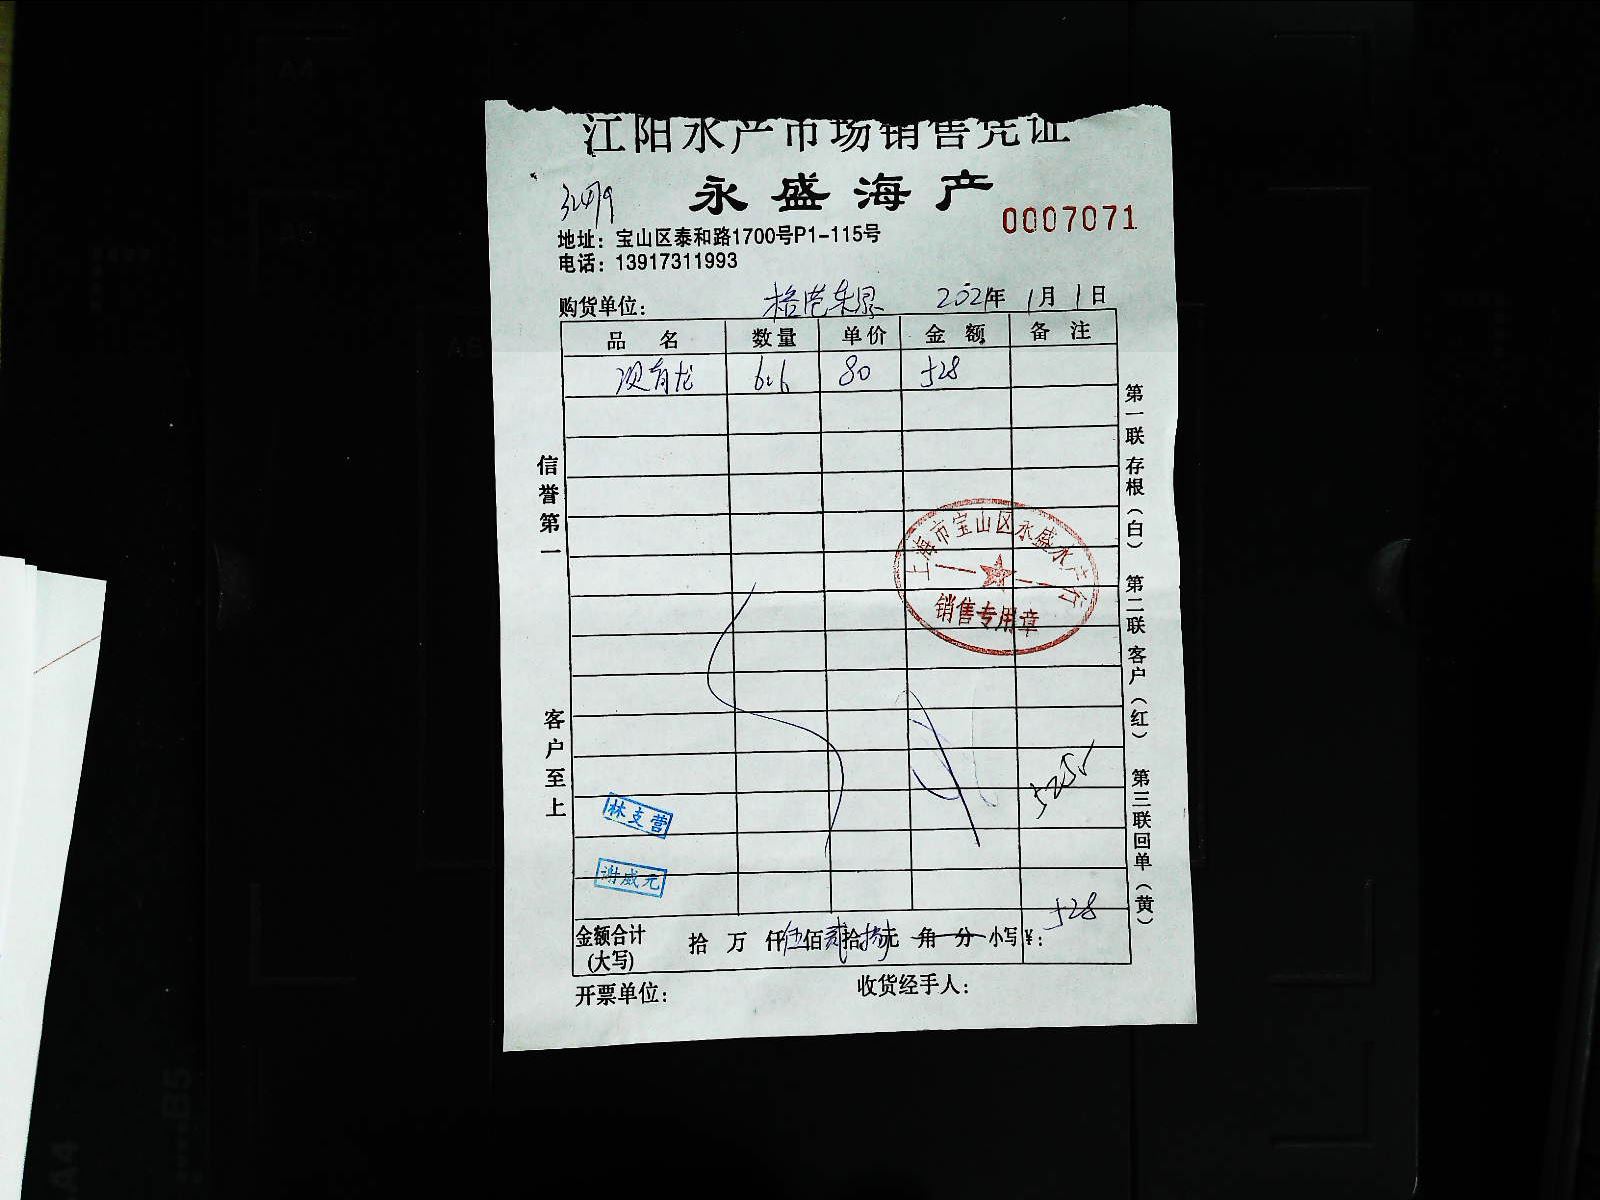 江阳水产市场销售凭证
永盛海产
0007071
地址：宝山区泰和路1700号P1-115号
电话：13917311993
购货单位：
2021年 1月 1日
品 名 数量 单价 金 额 备 注
6.6 80 528
信誉第一
客户至上
第一联 存根（白） 第二联 客户（红） 第三联 回单（黄）
上海市宝山区永盛水产行
销售专用章
林支营
谢威元
金额合计
(大写)
拾 万 仟伍佰贰拾捌元 角 分 小写¥：
528
开票单位： 收货经手人：